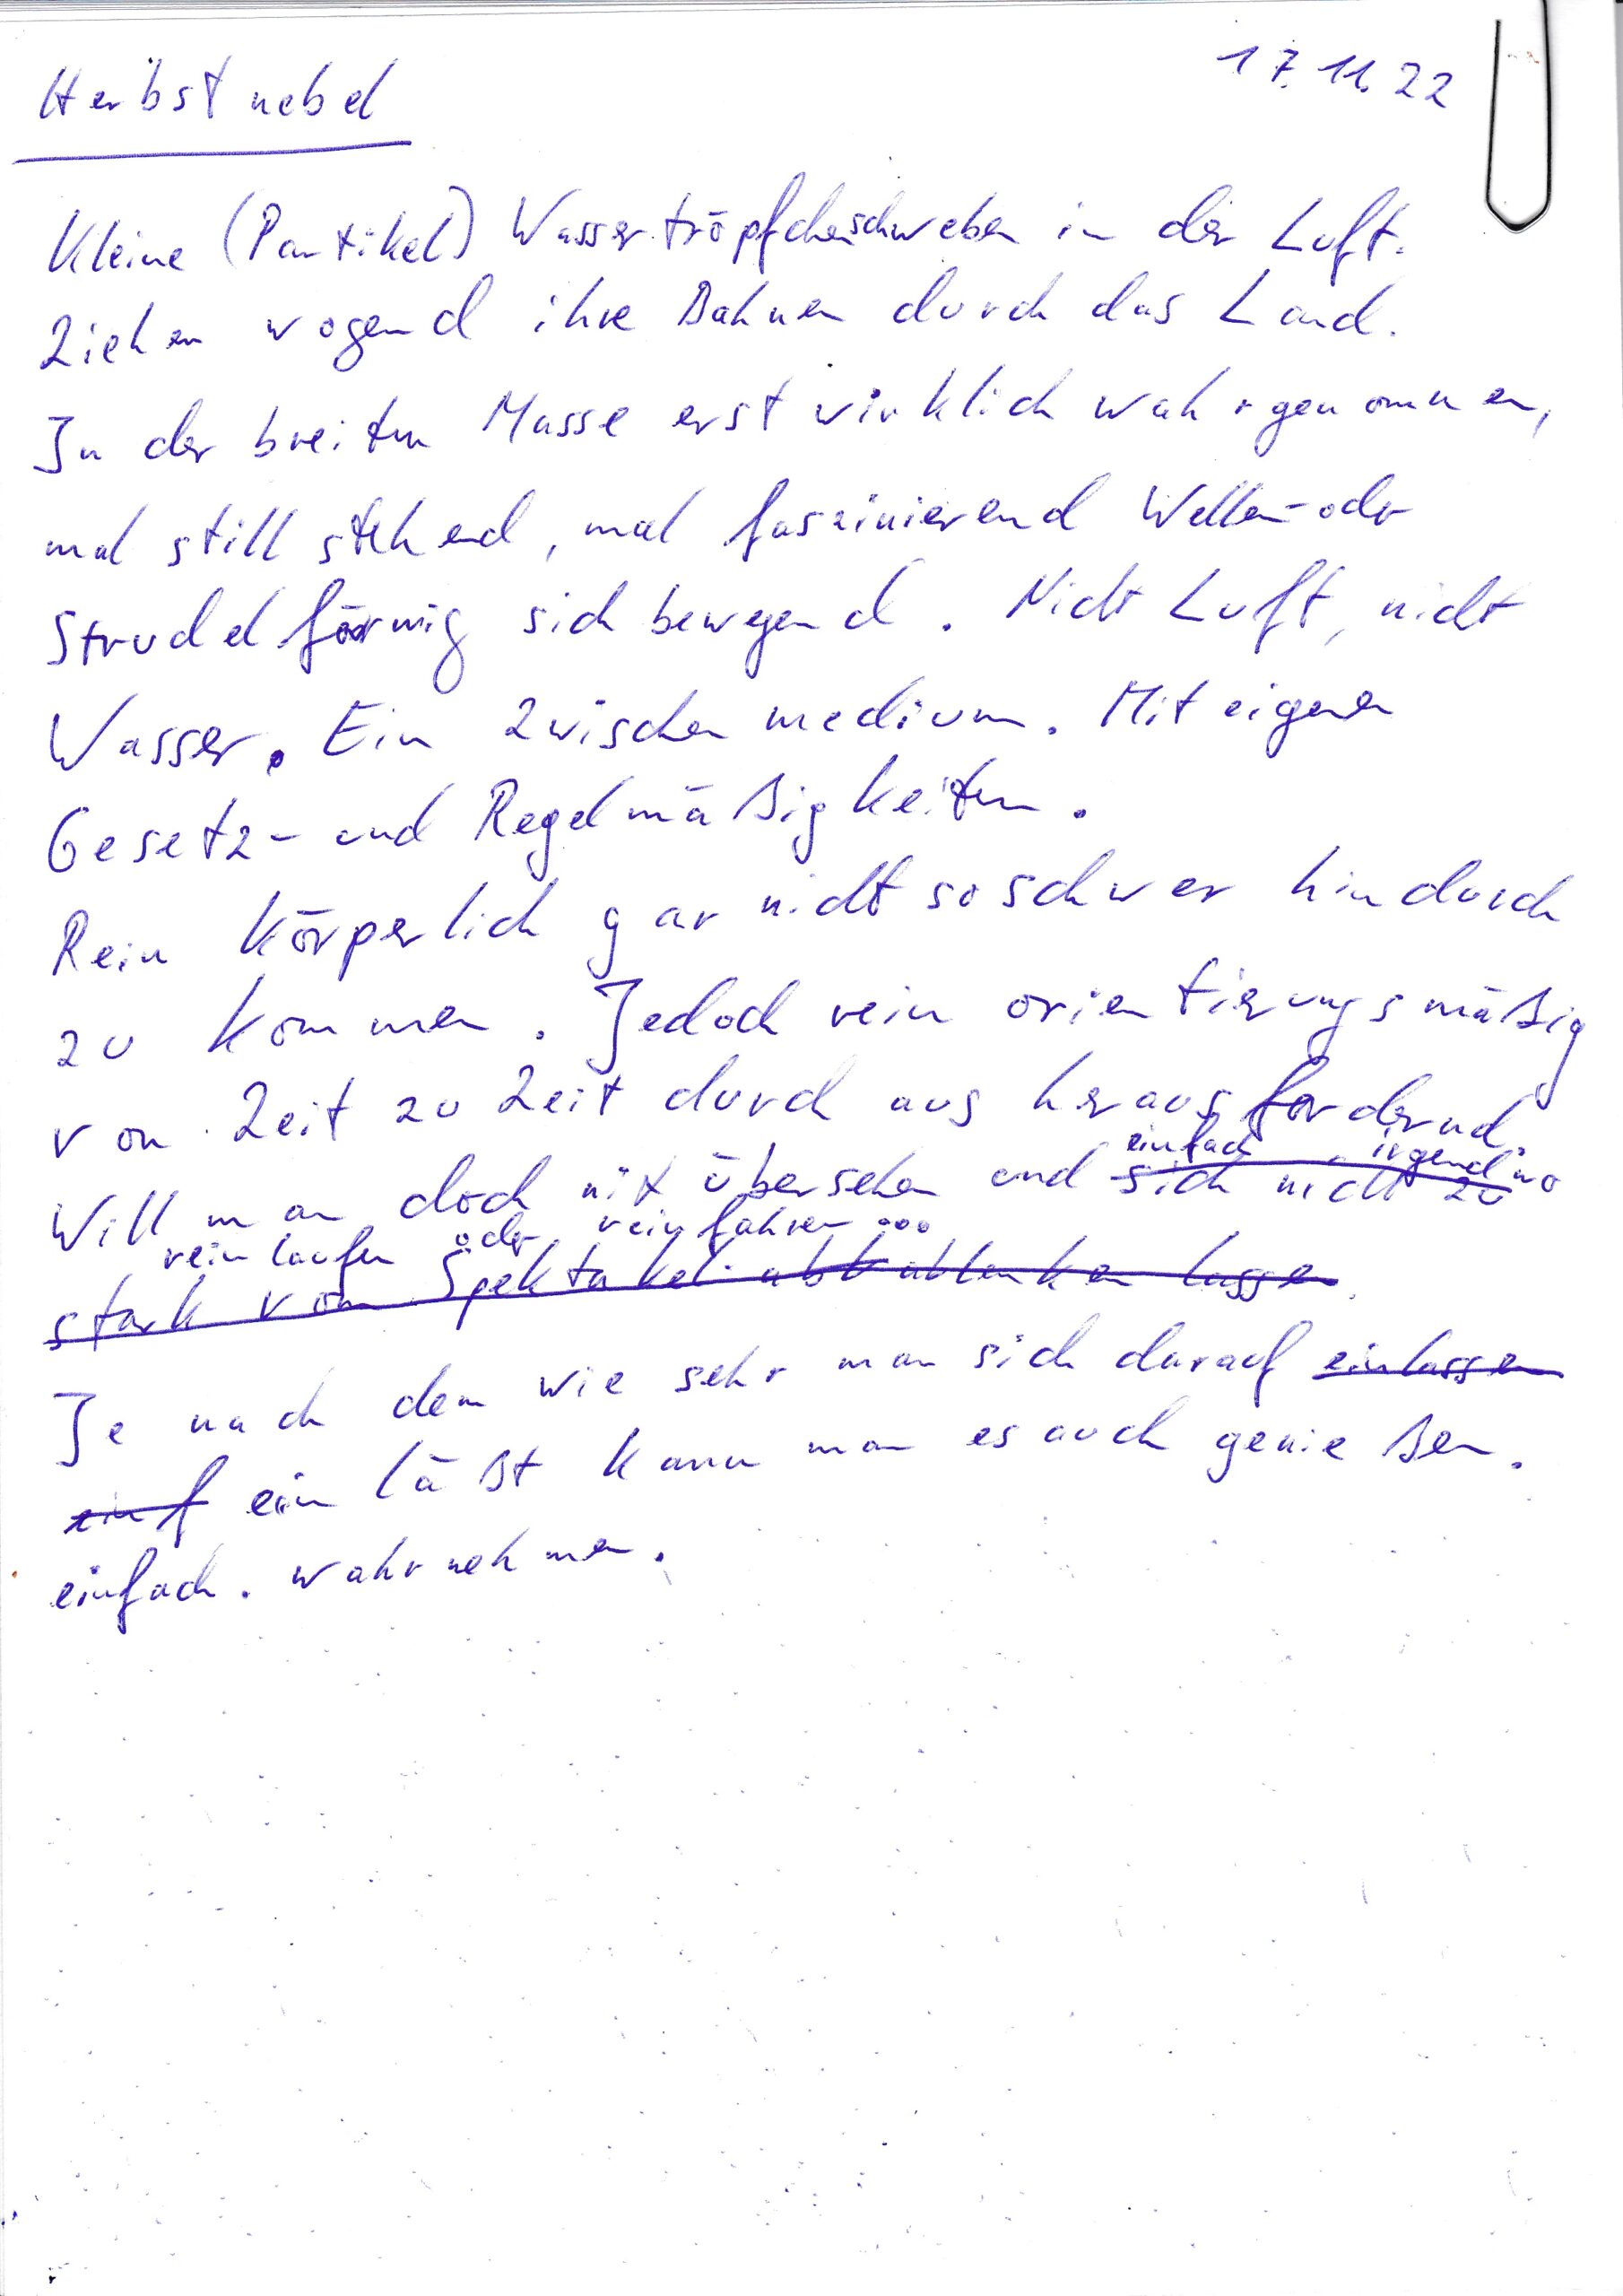 Herbstnebel
17.11.22
Kleine (Partikel) Wassertröpfchen schweben in der Luft.
Ziehen wogend ihre Bahnen durch das Land.
In der breiten Masse erst wirklich wahrgenommen,
mal still stehend, mal faszinierend Wellen- oder
Strudelförmig sich bewegend. Nicht Luft, nicht
Wasser. Ein Zwischenmedium. Mit eigenen
Gesetz- und Regelmäßigkeiten.
Rein körperlich gar nicht so schwer hindurch
zu kommen. Jedoch rein orientierungsmäßig
von Zeit zu Zeit durchaus herausfordernd.
einfach irgendwo
Will man doch nix übersehen und sich nicht zu
reinlaufen oder reinfahren ...
stark vom Spektakel ablenken lassen.
Je nach dem wie sehr man sich darauf einlassen
einf einläßt kann man es auch genießen.
einfach. wahrnehmen.